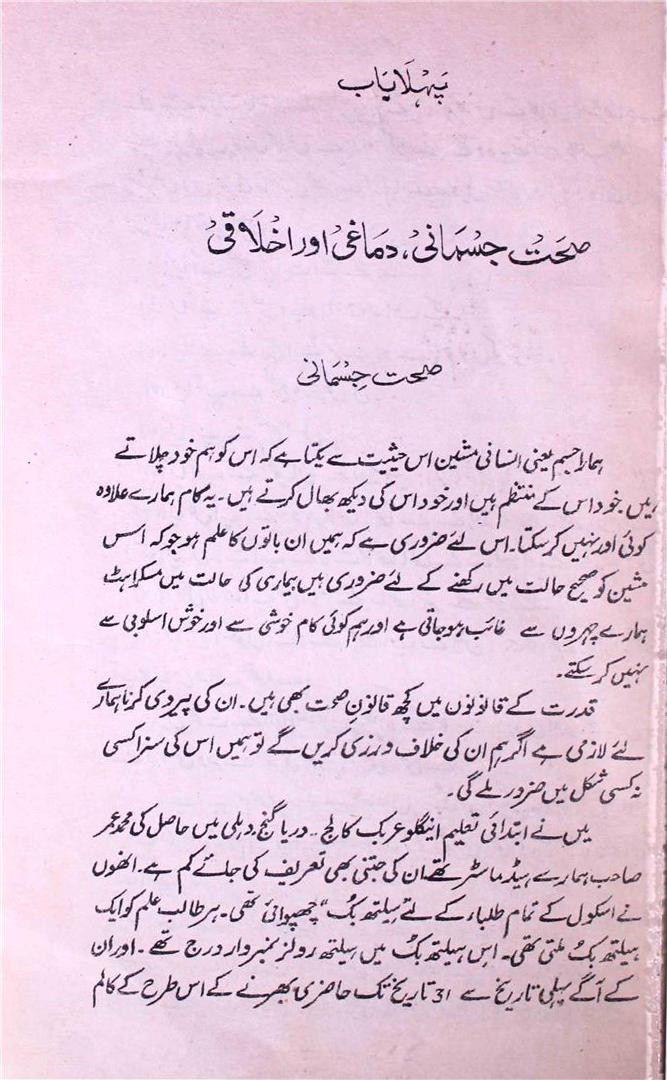 پہلا باب
صحت جسمانی، دماغی اور اخلاقی
صحت جسمانی
ہمارا جسم یعنی انسانی مشین اس حیثیت سے یکتا ہے کہ اس کو ہم خود چلاتے
ہیں۔ خود اس کے منتظم ہیں اور خود اس کی دیکھ بھال کرتے ہیں۔ یہ کام ہمارے علاوہ
کوئی اور نہیں کر سکتا۔ اس لئے ضروری ہے کہ ہمیں ان باتوں کا علم ہو جو کہ اس
مشین کو صحیح حالت میں رکھنے کے لئے ضروری ہیں بیماری کی حالت میں مسکراہٹ
ہمارے چہروں سے غائب ہو جاتی ہے اور ہم کوئی کام خوشی سے اور خوش اسلوبی سے
نہیں کر سکتے۔
قدرت کے قانونوں میں کچھ قانونِ صحت بھی ہیں۔ ان کی پیروی کرنا ہمارے
لئے لازمی ہے اگر ہم ان کی خلاف ورزی کریں گے تو ہمیں اس کی سزا کسی
نہ کسی شکل میں ضرور ملے گی۔
میں نے ابتدائی تعلیم اینگلو عربک کالج۔ دریا گنج، دہلی میں حاصل کی محمد عمر
صاحب ہمارے ہیڈ ماسٹر تھے ان کی جتنی بھی تعریف کی جائے کم ہے۔ انھوں
نے اسکول کے تمام طلباء کے لئے ”ہیلتھ بک“ چھپوائی تھی۔ ہر طالب علم کو ایک
ہیلتھ بک ملتی تھی۔ اس ہیلتھ بک میں ہیلتھ رولز نمبر وار درج تھے۔ اور ان
کے آگے پہلی تاریخ سے 31 تاریخ تک حاضری بھرنے کے اس طرح کے کالم